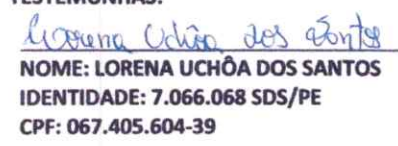 TESTEMUNHAS:
Lorena Uchôa dos Santos
NOME: LORENA UCHÔA DOS SANTOS
IDENTIDADE: 7.066.068 SDS/PE
CPF: 067.405.604-39